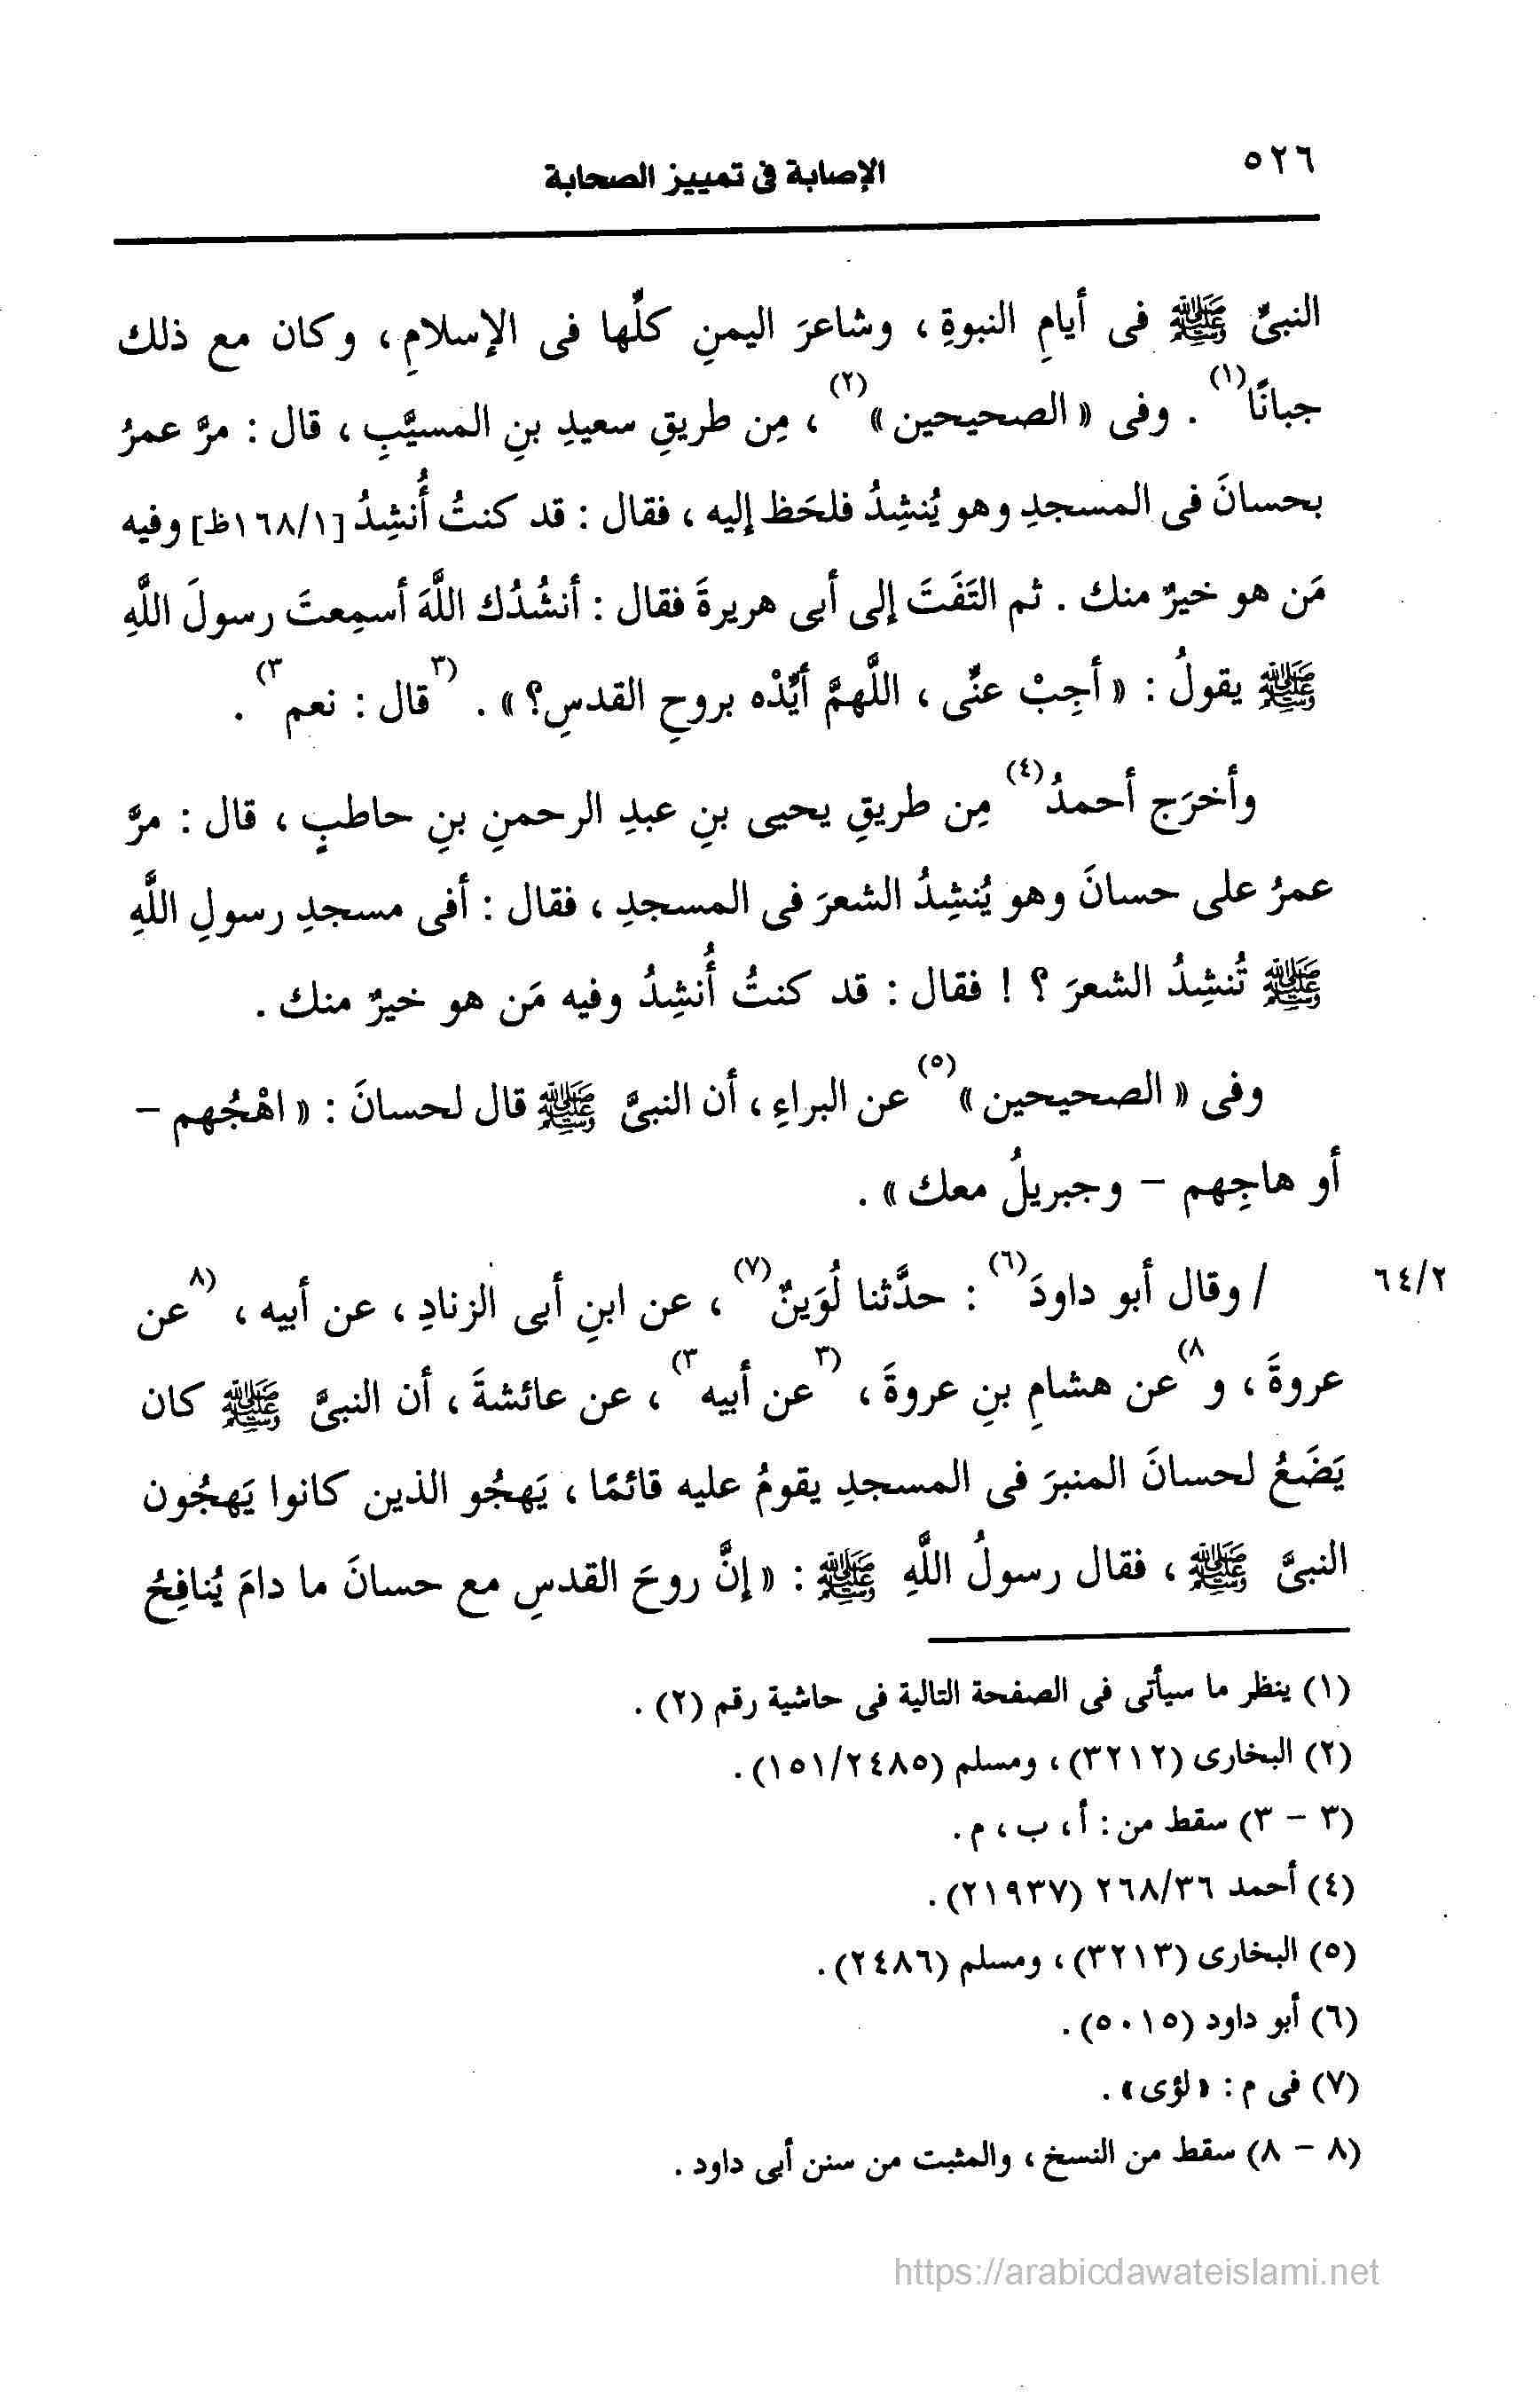 ٥٢٦
الإصابة فى تمييز الصحابة
النبىِّ ﷺ فى أيامِ النبوةِ ، وشاعرَ اليمنِ كلِّها فى الإسلامِ ، وكان مع ذلك
جبانًا(١) . وفى « الصحيحين »(٢) ، مِن طريقِ سعيدِ بنِ المسيَّبِ ، قال : مرَّ عمرُ
بحسانَ فى المسجدِ وهو يُنشِدُ فلحَظ إليه ، فقال : قد كنتُ أُنشِدُ [١٦٨/١ظ] وفيه
مَن هو خيرٌ منك . ثم التَفَتَ إلى أبى هريرةَ فقال : أنشُدُك اللَّهَ أسمِعتَ رسولَ اللَّهِ
ﷺ يقولُ : « أجِبْ عنِّى ، اللَّهمَّ أيِّدْه بروحِ القدسِ؟ » . (٣قال : نعم٣) .
وأخرَج أحمدُ(٤) مِن طريقِ يحيى بنِ عبدِ الرحمنِ بنِ حاطبٍ ، قال : مرَّ
عمرُ على حسانَ وهو يُنشِدُ الشعرَ فى المسجدِ ، فقال : أفى مسجدِ رسولِ اللَّهِ
ﷺ تُنشِدُ الشعرَ ؟ ! فقال : قد كنتُ أُنشِدُ وفيه مَن هو خيرٌ منك .
وفى « الصحيحين »(٥) عن البراءِ ، أن النبىَّ ﷺ قال لحسانَ : « اهْجُهم -
أو هاجِهم - وجبريلُ معك » .
٦٤/٢ / وقال أبو داودَ(٦) : حدَّثنا لُوَينٌ(٧) ، عن ابنِ أبى الزنادِ ، عن أبيه ، (٨عن
عروةَ ، و٨)عن هشامِ بنِ عروةَ ، (٣عن أبيه٣) ، عن عائشةَ ، أن النبىَّ ﷺ كان
يَضَعُ لحسانَ المنبرَ فى المسجدِ يقومُ عليه قائمًا ، يَهجُو الذين كانوا يَهجُون
النبىَّ ﷺ ، فقال رسولُ اللَّهِ ﷺ : « إنَّ روحَ القدسِ مع حسانَ ما دامَ يُنافِحُ
(١) ينظر ما سيأتى فى الصفحة التالية فى حاشية رقم (٢) .
(٢) البخارى (٣٢١٢) ، ومسلم (١٥١/٢٤٨٥) .
(٣ - ٣) سقط من : أ ، ب ، م .
(٤) أحمد ٢٦٨/٣٦ (٢١٩٣٧) .
(٥) البخارى (٣٢١٣) ، ومسلم (٢٤٨٦) .
(٦) أبو داود (٥٠١٥) .
(٧) فى م : « لؤى » .
(٨ - ٨) سقط من النسخ ، والمثبت من سنن أبى داود .
https://arabicdawateislami.net